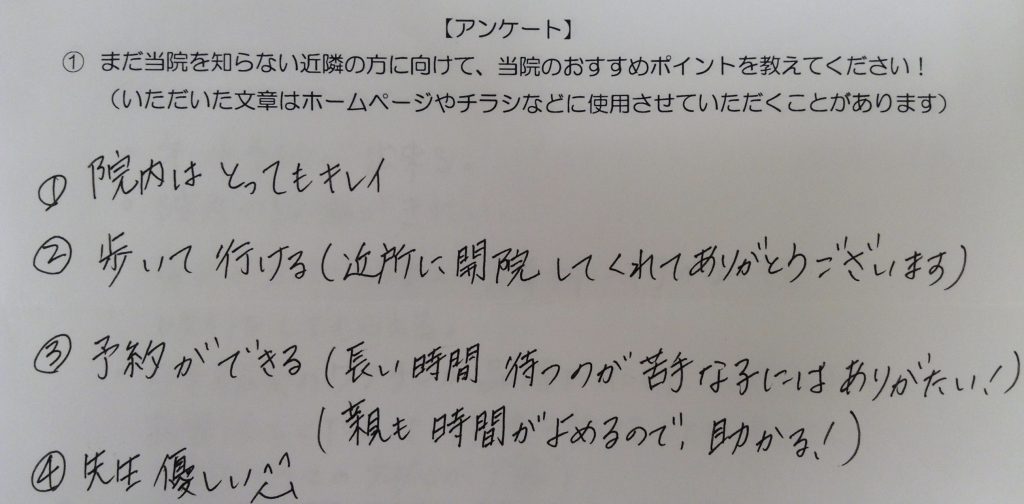 【アンケート】
① まだ当院を知らない近隣の方に向けて、当院のおすすめポイントを教えてください！
（いただいた文章はホームページやチラシなどに使用させていただくことがあります）
① 院内は とってもキレイ
② 歩いて 行ける(近所に開院してくれてありがとうございます)
③ 予約ができる (長い時間 待つのが苦手な子にはありがたい！)
(親も時間がよめるので、助かる！)
④ 先生優しい^^